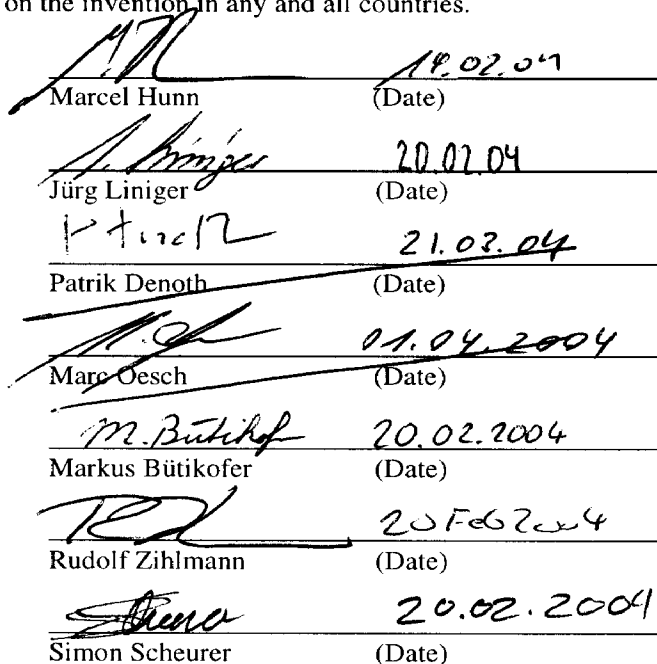 on the invention in any and all countries.
02.04
Marcel Hunn (Date)
20.02.04
Jürg Liniger (Date)
21.03.04
Patrik Denoth (Date)
01.04.2004
Marc Oesch (Date)
M. Bütikofer 20.02.2004
Markus Bütikofer (Date)
20 Feb 2004
Rudolf Zihlmann (Date)
20.02.2004
Simon Scheurer (Date)